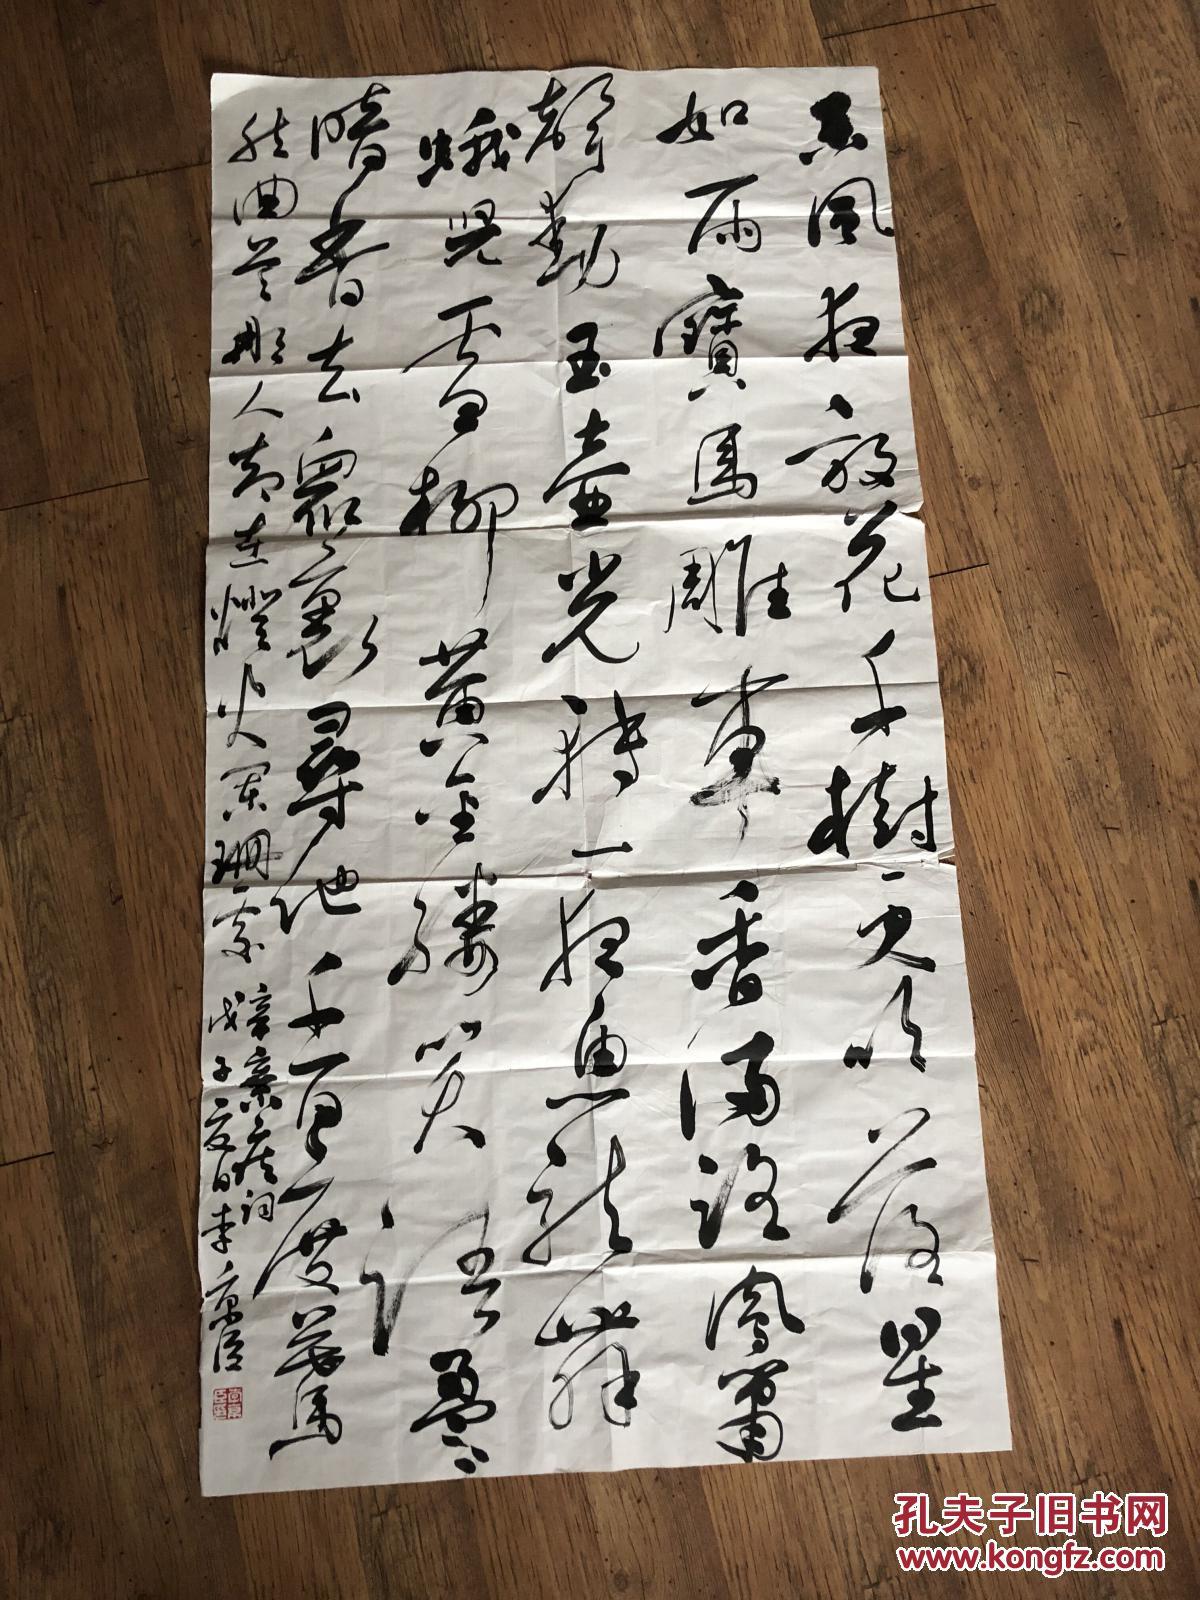 東風夜放花千樹更吹落星
如雨寶馬雕車香滿路鳳簫
聲動玉壺光轉一夜魚龍舞
蛾兒雪柳黃金縷笑語盈盈
暗香去眾裏尋他千百度驀
然回首那人卻在燈火闌珊處
辛棄疾詞
戊子夏日李京
孔夫子旧书网
www.kongfz.com